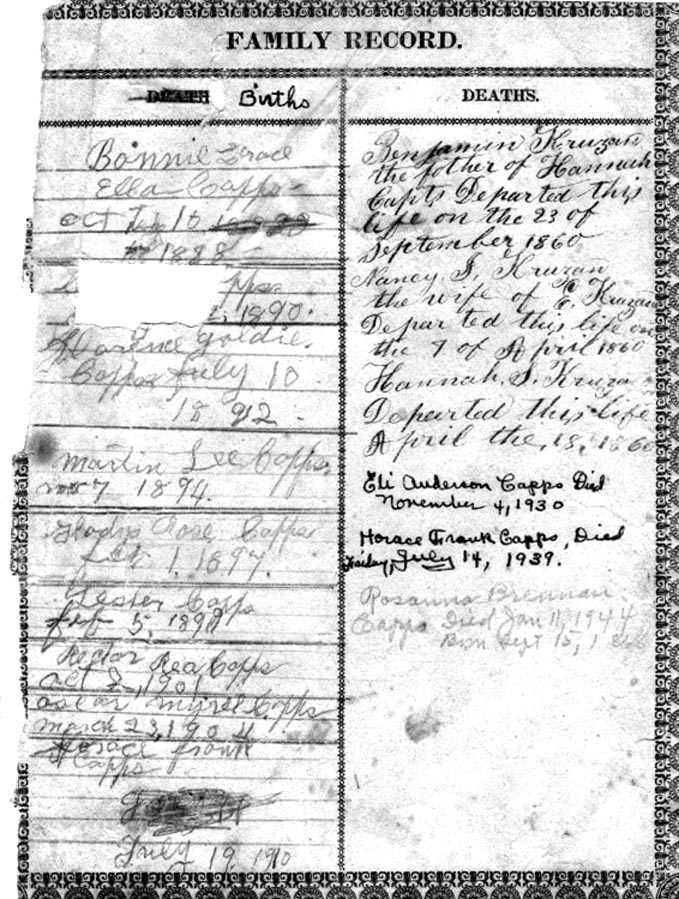 FAMILY RECORD.
DEATH Births
Bonnie Grace
Ella Capps
Oct 10
1888
Capps
1890.
Florence Goldie
Capps July 10
1892
Martin Lee Capps
7 1894.
Gladys Rose Capps
Feb 1, 1897
Lester Capps
Feb 5, 1898
Rector Rea Capps
Oct 2, 1901
Oscar Capps
March 23, 1904
Horace Frank
Capps
July 19, 1910
DEATHS.
Benjamin Kruzan
the father of Hannah
Capts Departed this
life on the 23 of
September 1860
Nancy S. Kruzan
the wife of Kruzan
Departed this life on
the 7 of April 1860
Hannah. S. Kruzan
Departed this life
April the, 18, 1860
Eli Anderson Capps Died
November 4, 1930
Horace Frank Capps, Died
Friday, July 14, 1939.
Rosanna Brennan
Capps Died Jan 11, 1944
Born Sept 15, 1